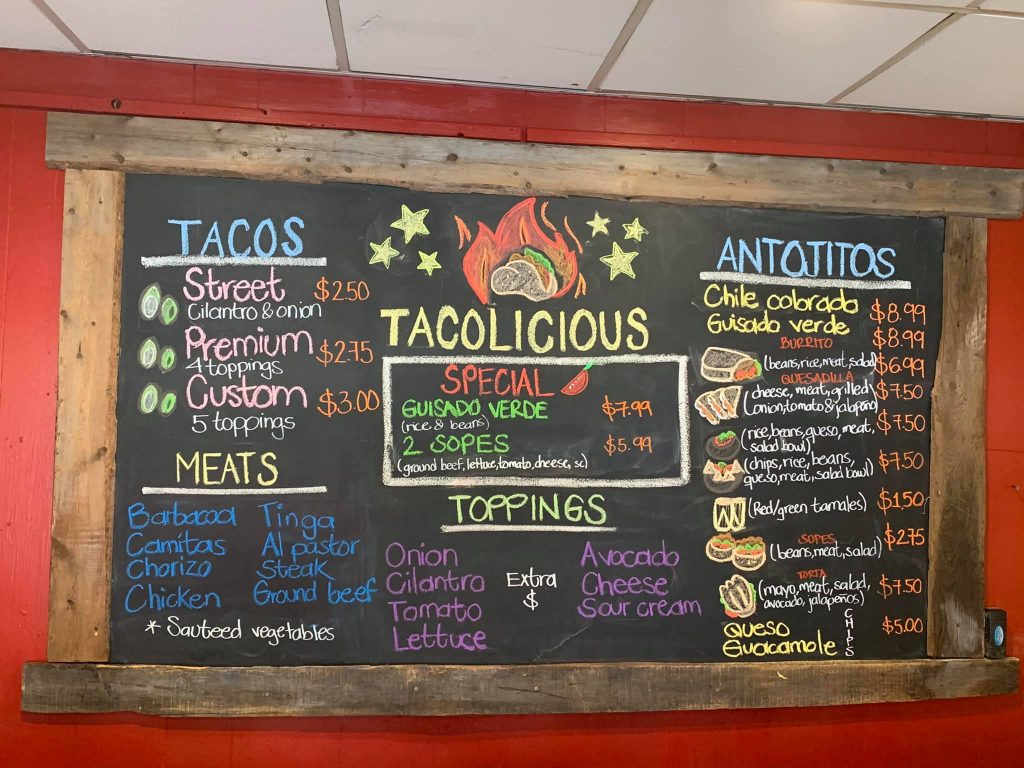 TACOS
Street $2.50
Cilantro & onion
Premium $2.75
4 toppings
Custom $3.00
5 toppings
MEATS
Barbacoa Tinga
Carnitas Al pastor
Chorizo Steak
Chicken Ground beef
* Sauteed vegetables
TACOLICIOUS
SPECIAL
GUISADO VERDE $7.99
(rice & beans)
2 SOPES $5.99
(ground beef, lettuce, tomato, cheese, sc)
TOPPINGS
Onion
Cilantro
Tomato
Lettuce
Extra
$
Avocado
Cheese
Sour cream
ANTOJITOS
Chile colorado $8.99
Guisado verde $8.99
BURRITO
(beans, rice, meat, salad) $6.99
QUESADILLA
(cheese, meat, grilled $7.50
onion, tomato & jalapeño)
(rice, beans, queso, meat, $7.50
salad bowl)
(chips, rice, beans, $7.50
queso, meat, salad bowl)
(Red/green tamales) $1.50
SOPES $2.75
(beans, meat, salad)
TORTA
(mayo, meat, salad, $7.50
avocado, jalapeños)
Queso $5.00
Guacamole
CHIPS